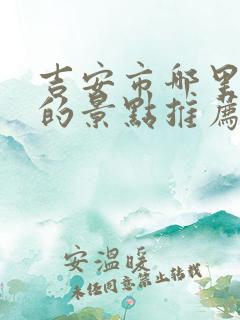 吉安市哪里
的景點推薦
安溫暖
未经同意禁止转载